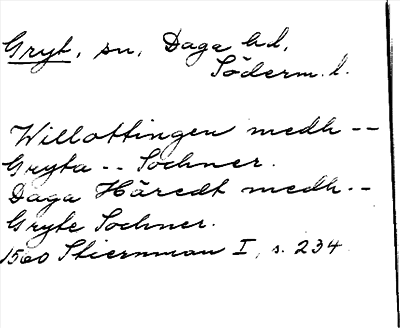 Gryt, sn, Daga hd,
Söderm. l.
Willottingen medh --
Gryta -- Sochner.
Daga Häredt medh --
Gryte Sochner.
1560 Stiernman I, s. 234